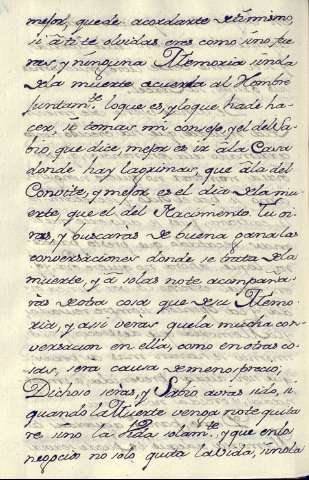 mejor, quede acordarte de ti mismo,
si à ti te olvidas eres como uno, fue
ras, y ninguna Memoria sinola
dela muerte acuerda al Hombre
juntam.te loque es, y loque hade ha-
cer, si tomas mi consejo, y el del Sa-
bio, que dice, mejor es ir à la Casa
donde hay lagrimas, que à la del
Convite, y mejor es el dia dela mu-
erte, que el del Nacimento. Tu oi-
ras, y buscaras de buena gana las
conversaciones donde se trata dela
muerte, y à solas note acompaña-
ràs de otra cosa que de su Memo-
ria, y assi veràs quela mucha con-
versacion en ella, como en otras co-
sas, serà causa de menosprecio;
Dichoso seràs, y Sabio auràs sido, si
quando la Muerte venga note quita
re sino la Vida solam.te, y que enlo
negocio no solo quita la Vida, sinola